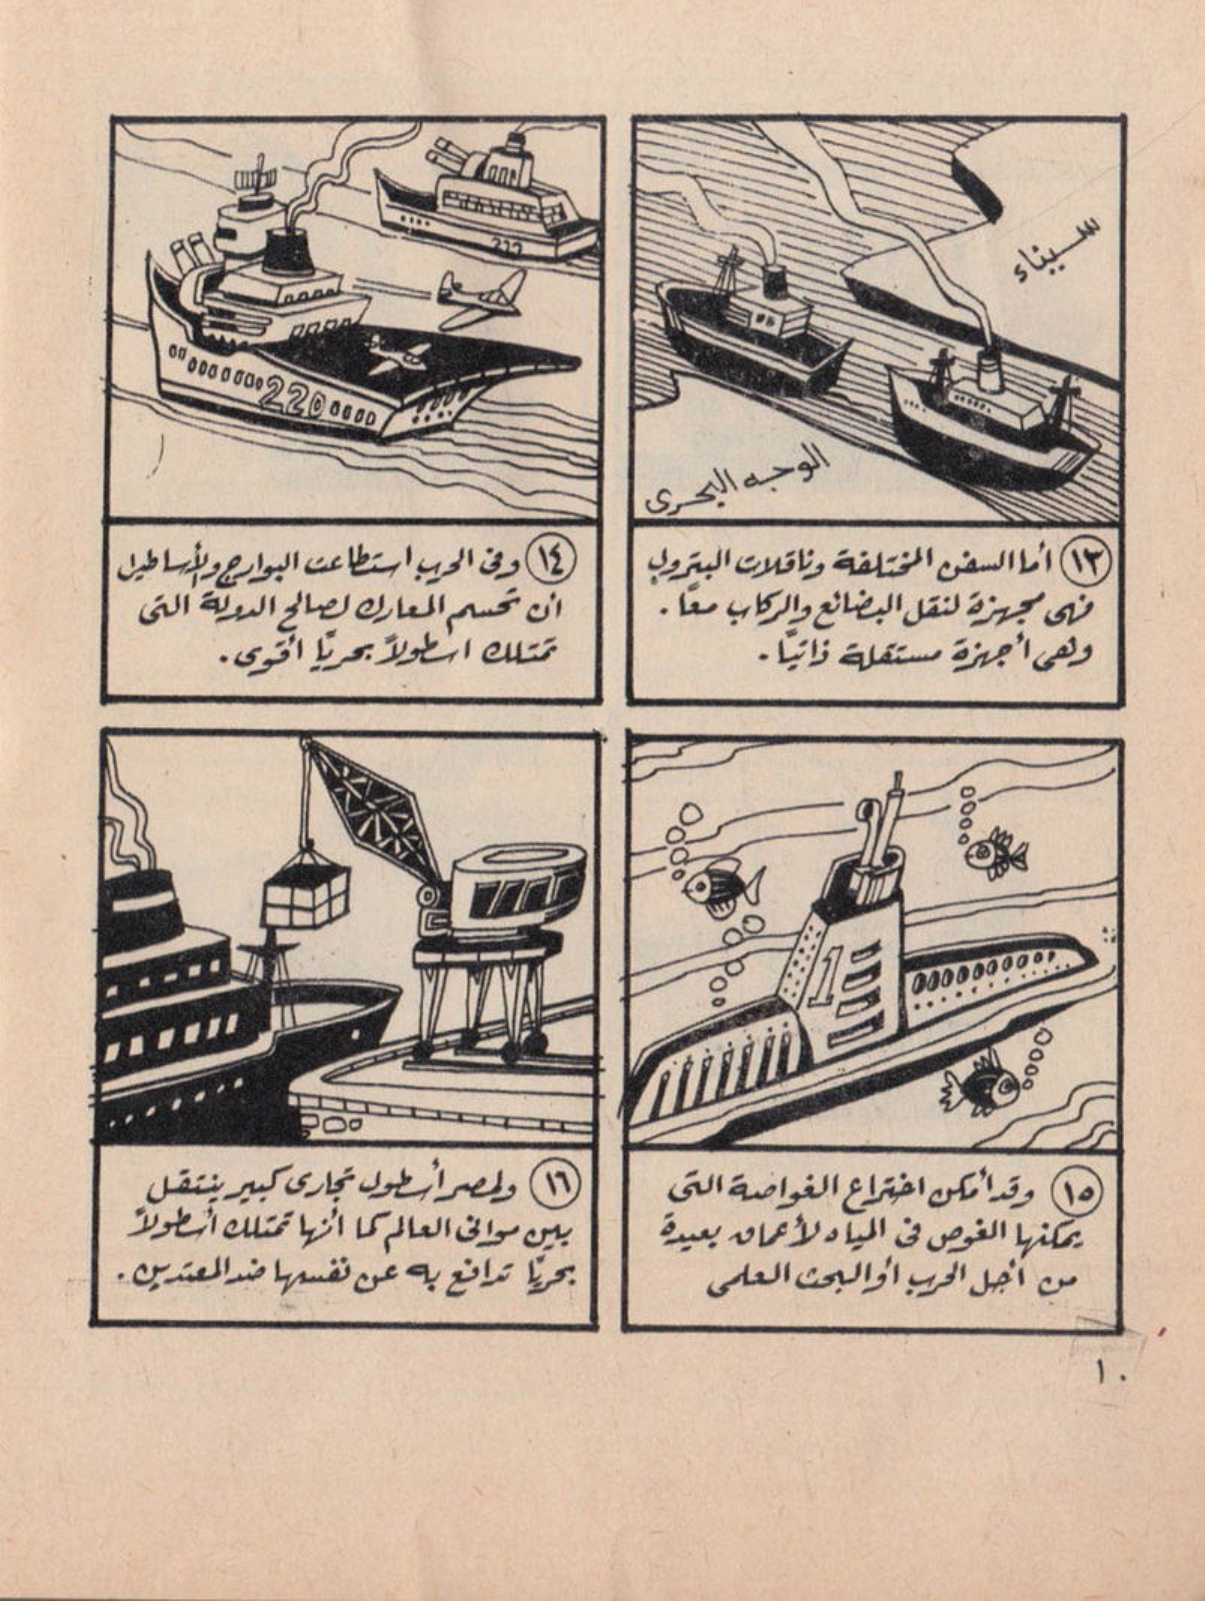 سيناء
الوجه البحرى
١٣ أما السفن المختلفة وناقلات البترول
فهى مجهزة لنقل البضائع والركاب معًا .
وهى أجهزة مستقلة ذاتيًا .
220
220
١٤ وفى الحرب استطاعت البوارج والأساطيل
أن تحسم المعارك لصالح الدولة التى
تمتلك اسطولاً بحريًا أقوى .
1
١٥ وقد أمكن اختراع الغواصة التى
يمكنها الغوص فى المياه لأعماق بعيدة
من أجل الحرب أو البحث العلمى
١٦ ولمصر أسطول تجارى كبير ينتقل
بين موانى العالم كما أنها تمتلك أسطولاً
بحريًا تدافع به عن نفسها ضد المعتدين .
١٠